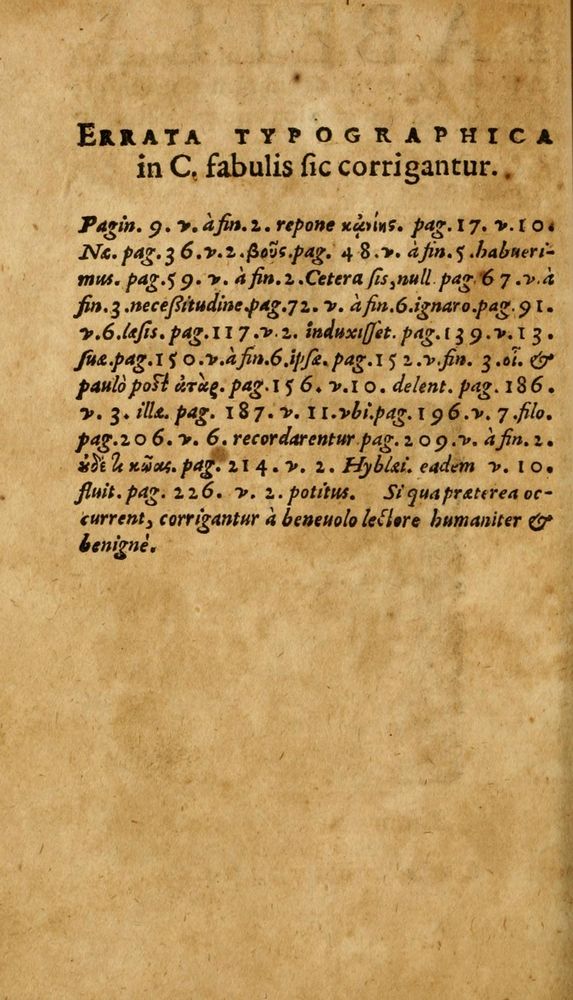 ERRATA TYPOGRAPHICA
in C. fabulis ſic corrigantur.
Pagin. 9. v. à fin. 2. repone pag. 17. v. 10.
Næ. pag. 36. v. 2. βοῦς. pag. 48. v. à fin. 5. habueri-
mus. pag. 59. v. à fin. 2. Cetera ſis, null. pag. 67. v. à
fin. 3. neceßitudine. pag. 72. v. à fin. 6. ignaro. pag. 91.
v. 6. læſis. pag. 117. v. 2. induxiſſet. pag. 139. v. 13.
ſuæ. pag. 150. v. à fin. 6. ipſæ. pag. 152. v. fin. 3. οἷ. &
paulò poſt ἀτὰρ. pag. 156. v. 10. delent. pag. 186.
v. 3. illæ. pag. 187. v. 11. vbi. pag. 196. v. 7. filo.
pag. 206. v. 6. recordarentur. pag. 209. v. à fin. 2.
κῶας. pag. 214. v. 2. Hyblæi. eadem v. 10.
fluit. pag. 226. v. 2. potitus. Si qua præterea oc-
current, corrigantur à beneuolo lectore humaniter &
benignè.